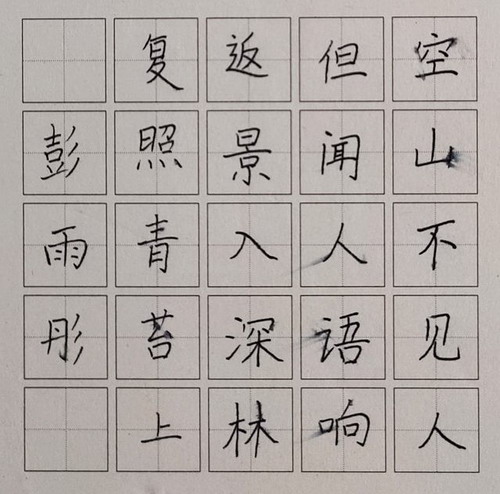 空山不见人
但闻人语响
返景入深林
复照青苔上
彭雨彤